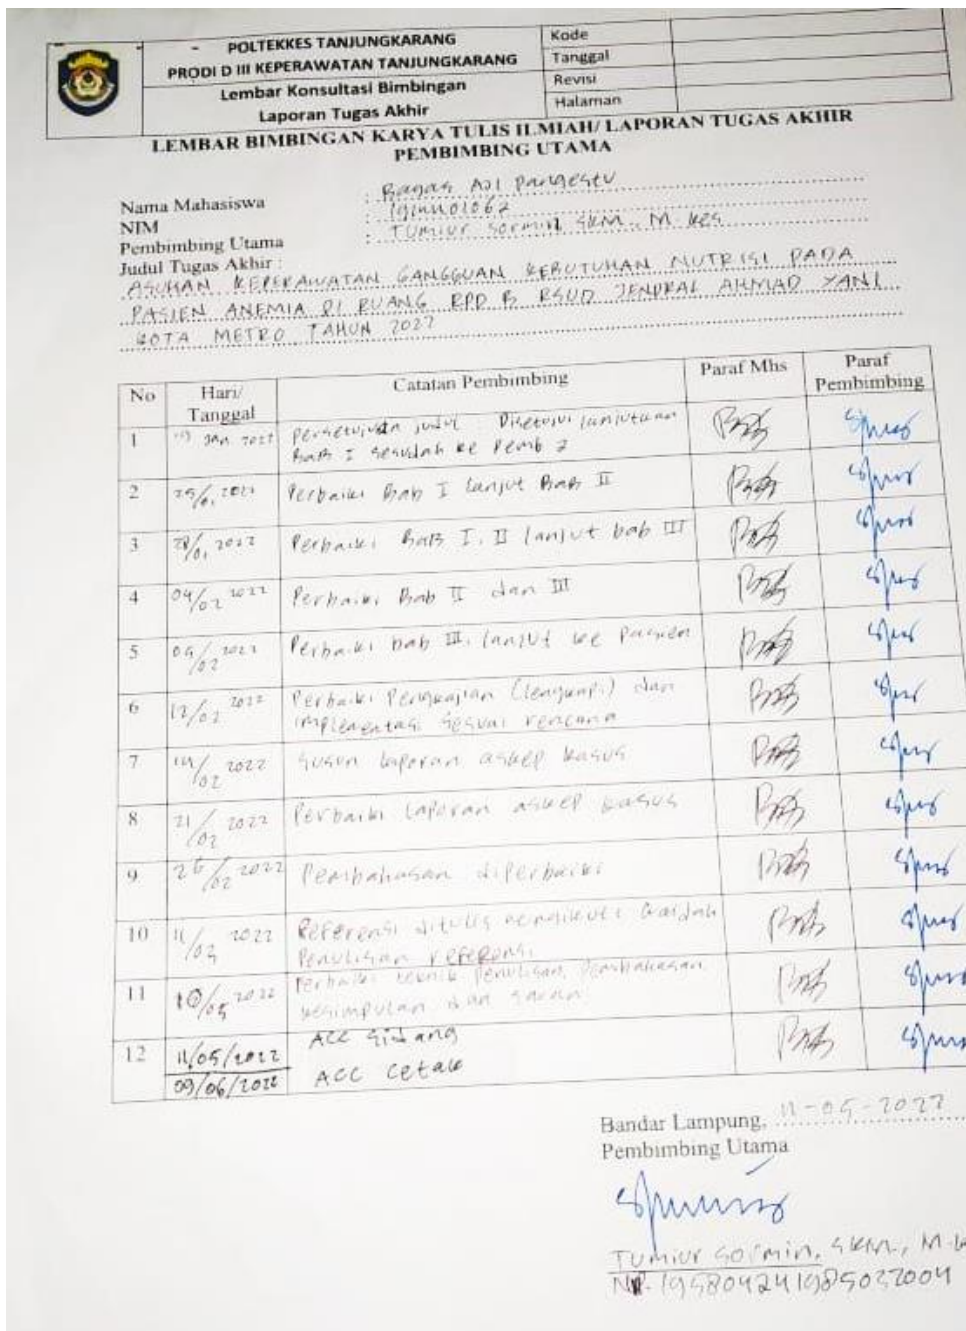 POLTEKKES TANJUNGKARANG
PRODI D III KEPERAWATAN TANJUNGKARANG
Lembar Konsultasi Bimbingan
Laporan Tugas Akhir
Kode
Tanggal
Revisi
Halaman
LEMBAR BIMBINGAN KARYA TULIS ILMIAH/ LAPORAN TUGAS AKHIR
PEMBIMBING UTAMA
Nama Mahasiswa : Bagas Aji Pangestu
NIM : 1914401062
Pembimbing Utama : Tumiur Sormin, SKM., M.Kes
Judul Tugas Akhir :
ASUHAN KEPERAWATAN GANGGUAN KEBUTUHAN NUTRISI PADA
PASIEN ANEMIA DI RUANG RPD B RSUD JENDRAL AHMAD YANI
KOTA METRO TAHUN 2022
No Hari/ Tanggal Catatan Pembimbing Paraf Mhs Paraf Pembimbing
1 Jan 2022 Persetujuan judul Disetujui lanjutkan
BAB I sesudah ke Pemb 2
2 25/01 2022 Perbaiki Bab I lanjut BAB II
3 28/01 2022 Perbaiki BAB I, II lanjut bab III
4 04/02 2022 Perbaiki Bab II dan III
5 09/02 2022 Perbaiki bab III, lanjut ke pasien
6 12/02 2022 Perbaiki Pengkajian (lengkapi) dan
implementasi sesuai rencana
7 14/02 2022 Susun laporan askep kasus
8 21/02 2022 Perbaiki Laporan askep kasus
9 26/02 2022 Pembahasan diperbaiki
10 11/03 2022 Referensi ditulis mengikuti kaidah
Penulisan referensi
11 10/05 2022 Perbaiki teknik penulisan, pembahasan
kesimpulan dan saran
12 11/05/2022 ACC Sidang
09/06/2022 ACC Cetak
Bandar Lampung, 11-05-2022
Pembimbing Utama
Tumiur Sormin, SKM., M.K
NIP. 195804241985032004